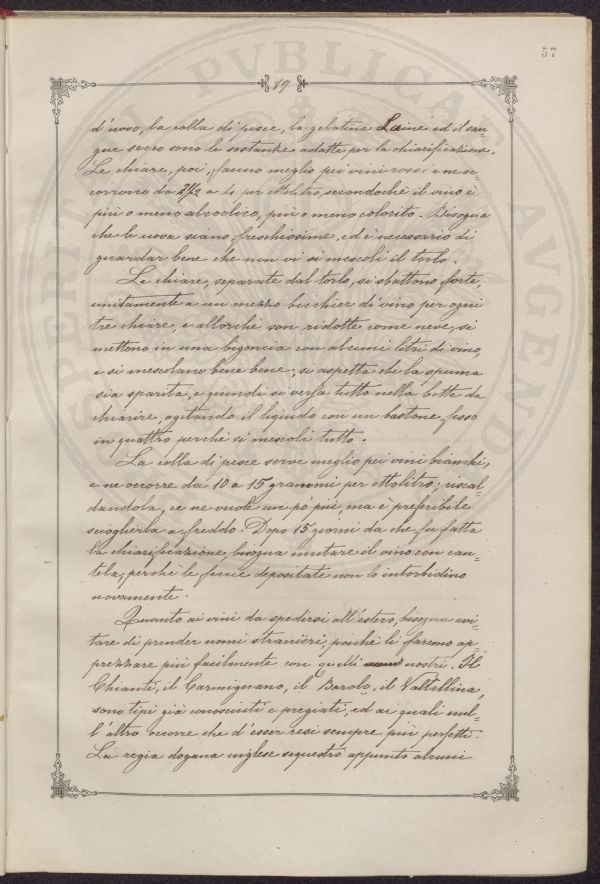 57
87
d'uovo, la colla di pesce, la gelatina Lainé ed il san-
gue secco sono le sostanze adatte per la chiarificazione.
Le chiare, poi, fanno meglio pei vini rossi e ne oc-
corrono da 2½ a 4 per ettolitro, secondochè il vino è
più o meno alcoolico, più o meno colorito. Bisogna
che le uova siano freschissime, ed è necessario di
guardar bene che non vi si mescoli il torlo.
Le chiare, separate dal torlo, si sbattono forte,
unitamente a un mezzo bicchier di vino per ogni
tre chiare, e allorchè son ridotte come neve, si
mettono in una bigoncia con alcuni litri di vino,
e si mescolano bene bene; si aspetta che la spuma
sia sparita, e quindi si versa tutto nella botte da
chiarire, agitando il liquido con un bastone fesso
in quattro perchè si mescoli tutto.
La colla di pesce serve meglio pei vini bianchi,
e ne occorre da 10 a 15 grammi per ettolitro; riscal-
dandola, ce ne vuole un pò più, ma è preferibile
sciogherla a freddo. Dopo 15 giorni da che fu fatta
la chiarificazione, bisogna mutare il vino con cau-
tela, perchè le fecce depositate non lo intorbidino
novamente.
Quanto ai vini da spedirsi all'estero, bisogna evi-
tare di prender nomi stranieri, poichè li faremo ap-
prezzare più facilmente con quelli nostri. Il
Chianti, il Carmignano, il Barolo, il Valtellina,
sono tipi già conosciuti e pregiati, ed ai quali null'
l'altro occorre che d'esser resi sempre più perfetti.
La regia dogana inglese sequestrò appunto alcuni
SPERITATI PVBLICAE AVGENDAE